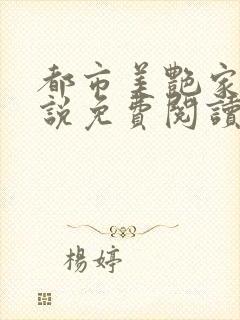 都市美艷家
說免費閱讀
楊婷